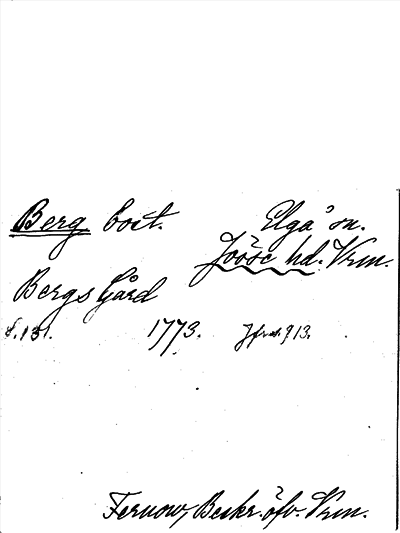 Berg bost. Elgå sn.
Jösse hd. Vrm.
Bergs Gård
s. 131. 1773.
Fernow, Beskr. öfv. Vrm.